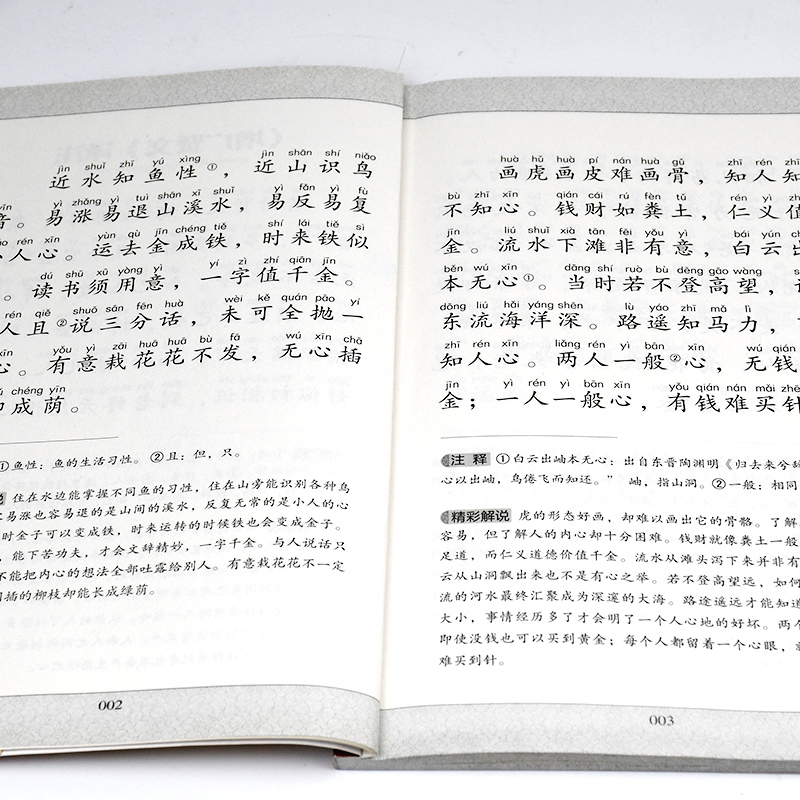 jìn shuǐ zhī yú xìng jìn shān shí niǎo
近水知鱼性①，近山识鸟
yīn yì zhǎng yì tuì shān xī shuǐ yì fǎn yì fù
音。易涨易退山溪水，易反易复
rén xīn yùn qù jīn chéng tiě shí lái tiě sì
人心。运去金成铁，时来铁似
dú shū xū yòng yì yí zì zhí qiān jīn
。读书须用意，一字值千金。
rén qiě shuō sān fēn huà wèi kě quán pāo yí
人且②说三分话，未可全抛一
xīn yǒu yì zāi huā huā bù fā wú xīn chā
心。有意栽花花不发，无心插
chéng yīn
成荫。
①鱼性：鱼的生活习性。②且：但，只。
说 住在水边能掌握不同鱼的习性，住在山旁能识别各种鸟
易涨也容易退的是山间的溪水，反复无常的是小人的心
时金子可以变成铁，时来运转的时候铁也会变成金子。
，能下苦功夫，才会文辞精妙，一字千金。与人说话只
不能把内心的想法全部吐露给别人。有意栽花花不一定
插的柳枝却能长成绿荫。
002
huà hǔ huà pí nán huà gǔ zhī rén zhī
画虎画皮难画骨，知人知
bù zhī xīn qián cái rú fèn tǔ rén yì zhí
不知心。钱财如粪土，仁义值
jīn liú shuǐ xià tān fēi yǒu yì bái yún chū
金。流水下滩非有意，白云出
běn wú xīn dāng shí ruò bù dēng gāo wàng shéi
本无心①。当时若不登高望，
dōng liú hǎi yáng shēn lù yáo zhī mǎ lì
东流海洋深。路遥知马力，
zhī rén xīn liǎng rén yì bān xīn wú qián
知人心。两人一般②心，无钱
jīn yì rén yì bān xīn yǒu qián nán mǎi zhēn
金；一人一般心，有钱难买针
注 释 ①白云出岫本无心：出自东晋陶渊明《归去来兮辞
心以出岫，鸟倦飞而知还。” 岫，指山洞。②一般：相同
精彩解说 虎的形态好画，却难以画出它的骨骼。了解
容易，但了解人的内心却十分困难。钱财就像粪土一般
足道，而仁义道德价值千金。流水从滩头泻下来并非有
云从山洞飘出来也不是有心之举。若不登高望远，如何
流的河水最终汇聚成为深邃的大海。路途遥远才能知道
大小，事情经历多了才会明了一个人心地的好坏。两个
即使没钱也可以买到黄金；每个人都留着一个心眼，
难买到针。
003